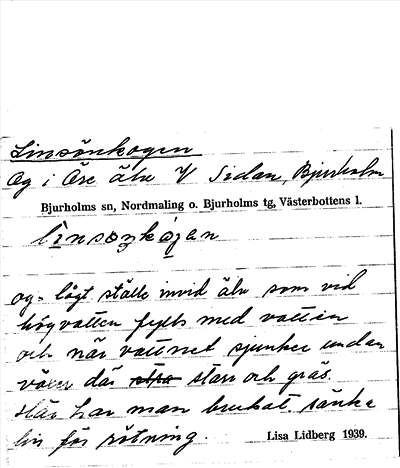 Linsönkogen
Og i Öre älv V Sidan, Bjurholm
Bjurholms sn, Nordmaling o. Bjurholms tg, Västerbottens l.
og = lågt ställe invid älv som vid
högvatten fylls med vatten
och när vattnet sjunker undan
växer där starr och gräs.
Här har man brukat sänka
lin för rötning.
Lisa Lidberg 1939.